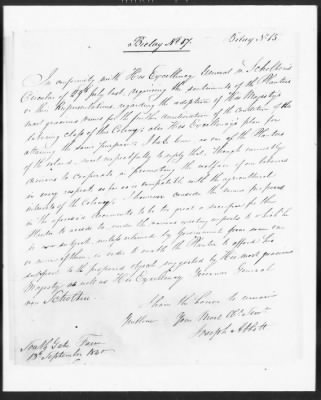 Bielag No 17.
Bilag No 15.
In conformity with His Excellency General v. Scholten's
Circular of 29th July last, requiring the sentiments of the Planters
or their Representatives, regarding the adoption of His Majesty's
most gracious means for the amelioration of the condition of the
laboring class of the Colony; also His Excellency's plan for
attaining the same purpose; I take leave as one of the Planters
of the island most respectfully to reply that, though earnestly
desirous to cooperate in promoting the welfare of our laborers
in every respect as far as is compatible with the agricultural
interests of the Colony, I however consider the means proposed
in the aforesaid documents to be too great a sacrifice for the
Planter to accede to under the various existing imposts to which he
is subject, unless released by Government from some one
or more of them, in order to enable the Planter to afford his
support to the proposed object suggested by His most gracious
Majesty as well as His Excellency Governor General
von Scholten.
I have the honor to remain
Gentlemen Your Most Obt. Servt.
Joseph Abbott
South Gate Farm
18th September 1840